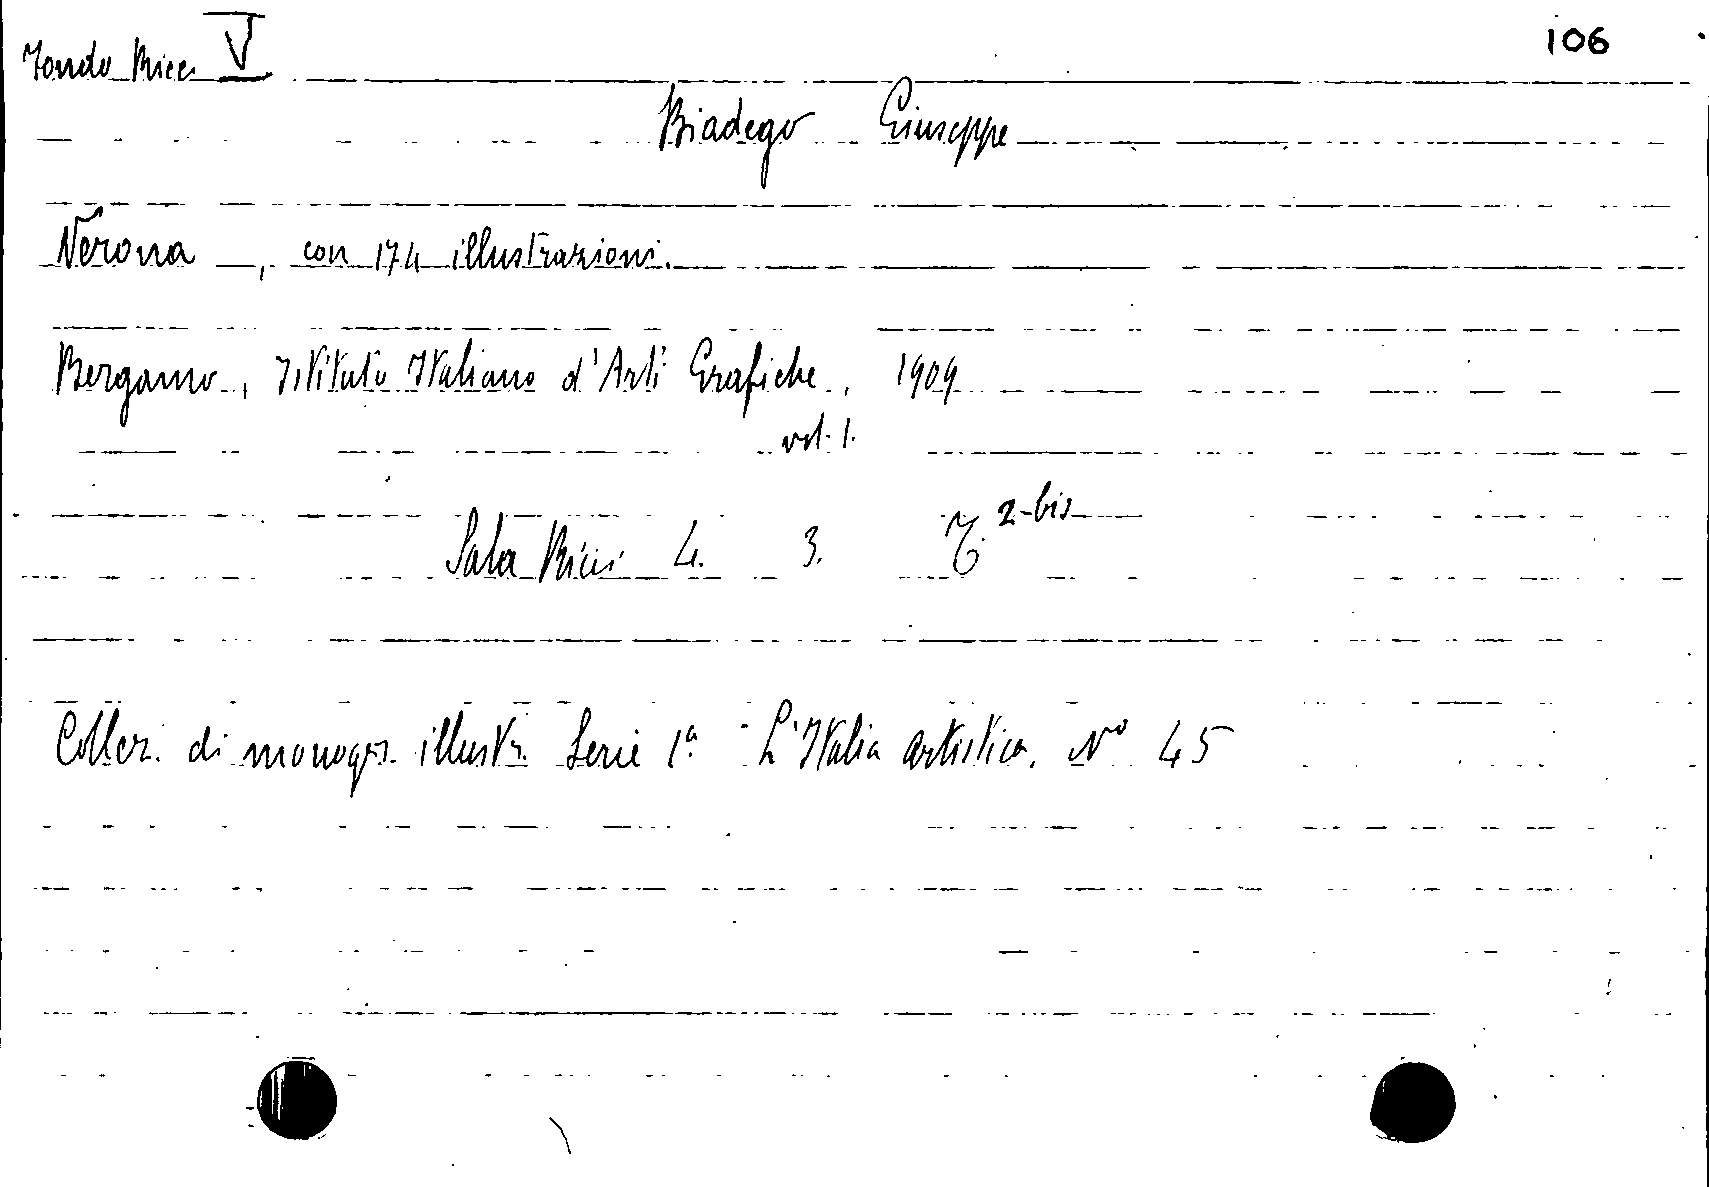 Fondo Ricci V
106
Biadego Giuseppe
Verona, con 174 illustrazioni.
Bergamo, Istituto Italiano d'Arti Grafiche, 1909
vol. 1.
Sala Ricci 4. 3. 2-bis
Collez. di monogr. illustr. Serie 1ª - L'Italia artistica. Nº 45